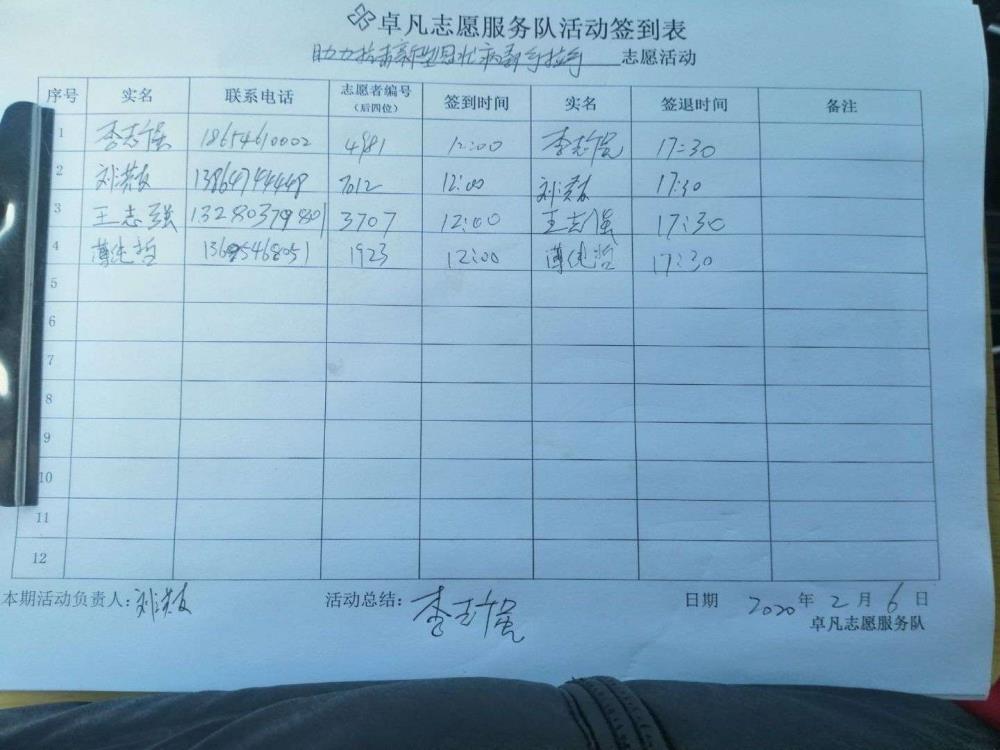 卓凡志愿服务队活动签到表
助力抗击新型冠状病毒 志愿活动
序号 实名 联系电话 志愿者编号（后四位） 签到时间 实名 签退时间 备注
1 李志强 18654610002 4981 12:00 李志强 17:30
2 刘洪友 13864744448 7012 12:00 刘洪友 17:30
3 王志强 13280379801 3707 12:00 王志强 17:30
4 薄纯哲 1923 12:00 薄纯哲 17:30
5
6
7
8
9
10
11
12
本期活动负责人：刘洪友 活动总结：李志强 日期 2020年2月6日
卓凡志愿服务队